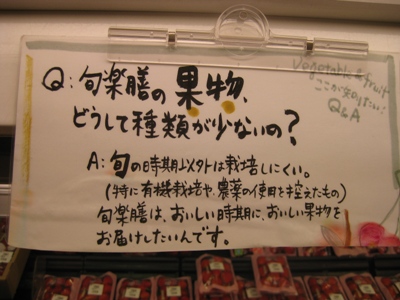 Vegetable & fruit
ここが知りたい!
Q&A
Q:旬楽膳の果物、
どうして種類が少ないの?
A:旬の時期以外は栽培しにくい。
(特に有機栽培や、農薬の使用を控えたもの)
旬楽膳は、おいしい時期に、おいしい果物を
お届けしたいんです。